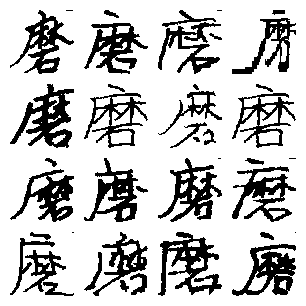 磨磨磨磨
磨磨磨磨
磨磨磨磨
磨磨磨磨